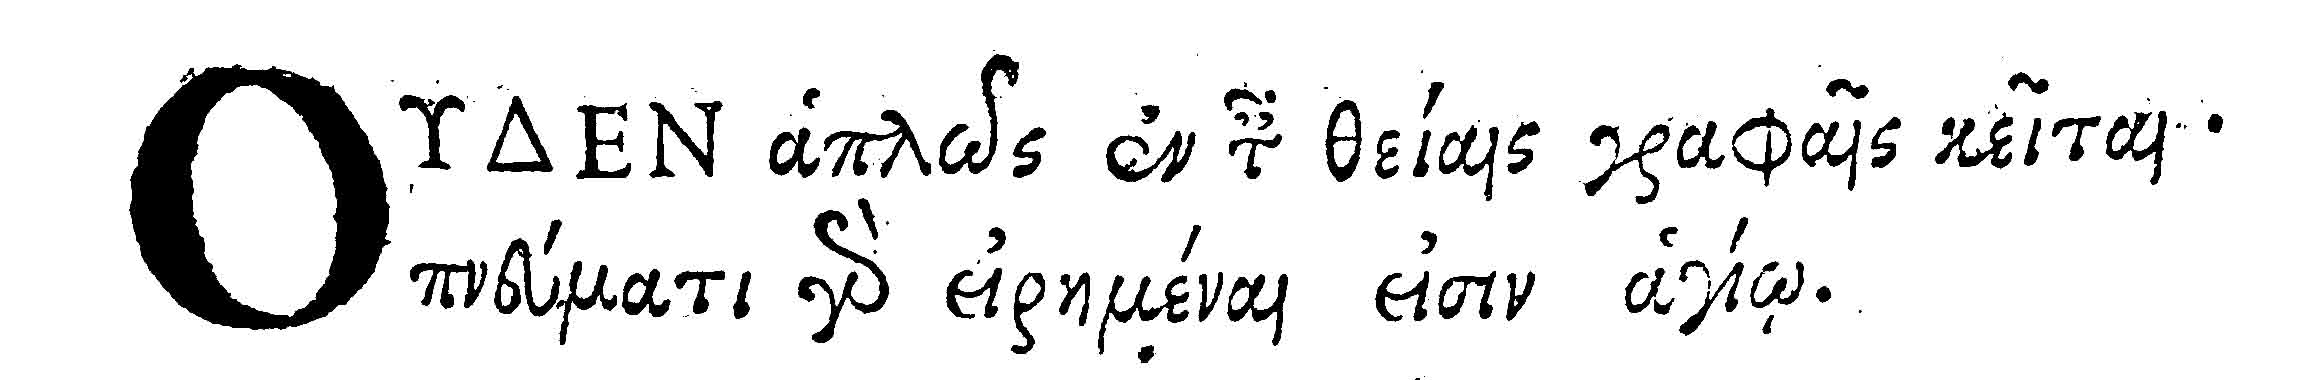 ΟΥΔΕΝ ἁπλῶς ἐν ταῖς θείαις γραφαῖς κεῖται.
πνεύματι γὰρ εἰρημέναι εἰσιν ἁγίῳ.